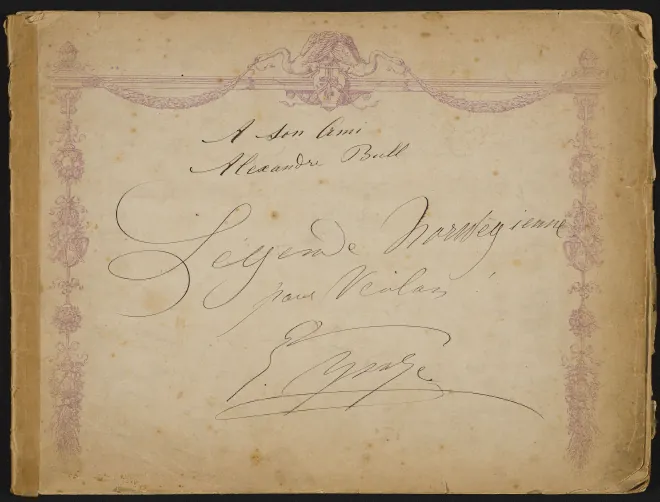 A Son Ami
Alexandre Bull
Légende Norwégienne
pour Violon